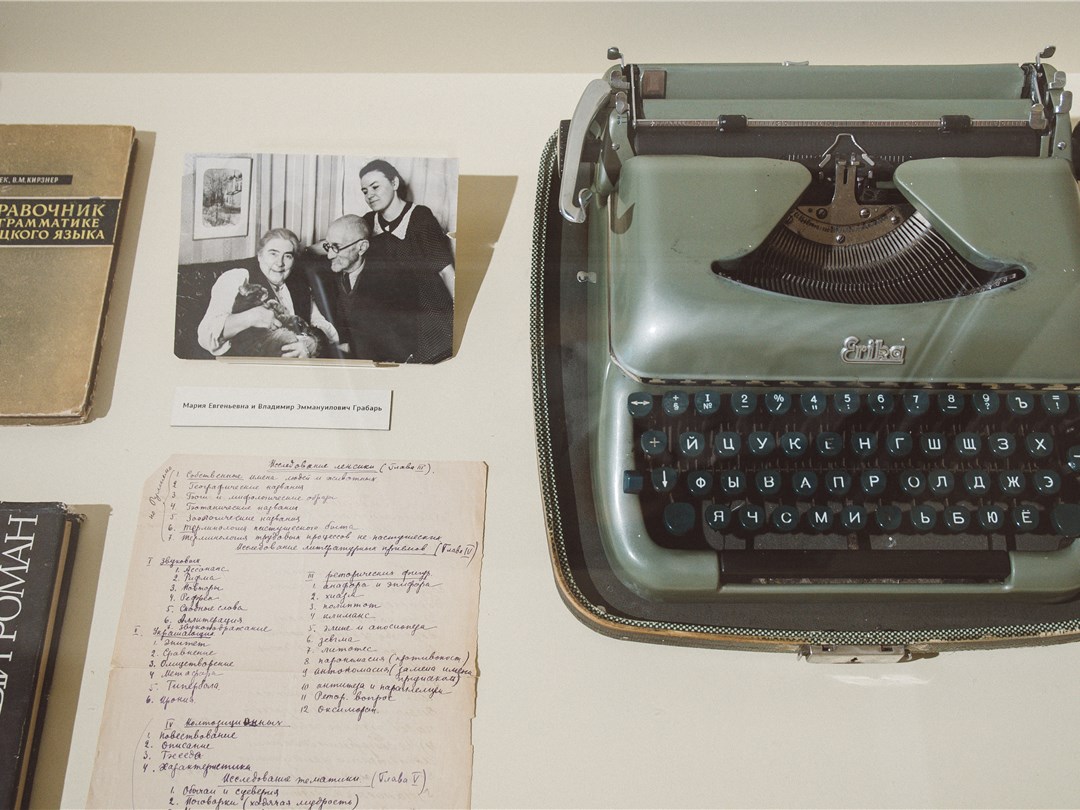 ЕК, В.М.КИРЗНЕР
РАВОЧНИК
ГРАММАТИКЕ
ЦКОГО ЯЗЫКА
Мария Евгеньевна и Владимир Эммануилович Грабарь
Erika
+ § I № 2 % / 4 5 6 7 8 9 Ъ = !
Й Ц У К Е Н Г Ш Щ З Х
Ф Ы В А П Р О Л Д Ж Э
Я Ч С М И Ь Б Ю Ё
РОМАН
Исследование лексики (Глава III).
1. Собственные имена людей и животных
2. Географические названия
3. Боги и мифологические образы
4. Ботанические названия
5. Зоологические названия
6. Терминология пастушеского быта
7. Терминология трудовых процессов не пастушеских
Исследование литературных приемов (Глава IV)
I Звуковых
1. Ассонанс
2. Рифма
3. Повторы
4. Рефрен
5. Сложные слова
6. Аллитерация
7. Звукоподражание
II Украшающих
1. Эпитет
2. Сравнение
3. Олицетворение
4. Метафора
5. Гипербола
6. Ирония
III риторических фигур
1. анафора и эпифора
2. хиазм
3. полиптот
4. климакс
5. элипс и апосиопеза
6. зевгма
7. литотес
8. парономасия
9. антономасия (замена имени
10 антитеза и параллелизм
11 Ретор. вопрос
12 Оксиморон
IV Композиционных
1. Повествование
2. Описание
3. Беседа
4. Характеристика
Исследование тематики (Глава V)
1. Обычаи и суеверия
2. Поговорки (ходячая мудрость)